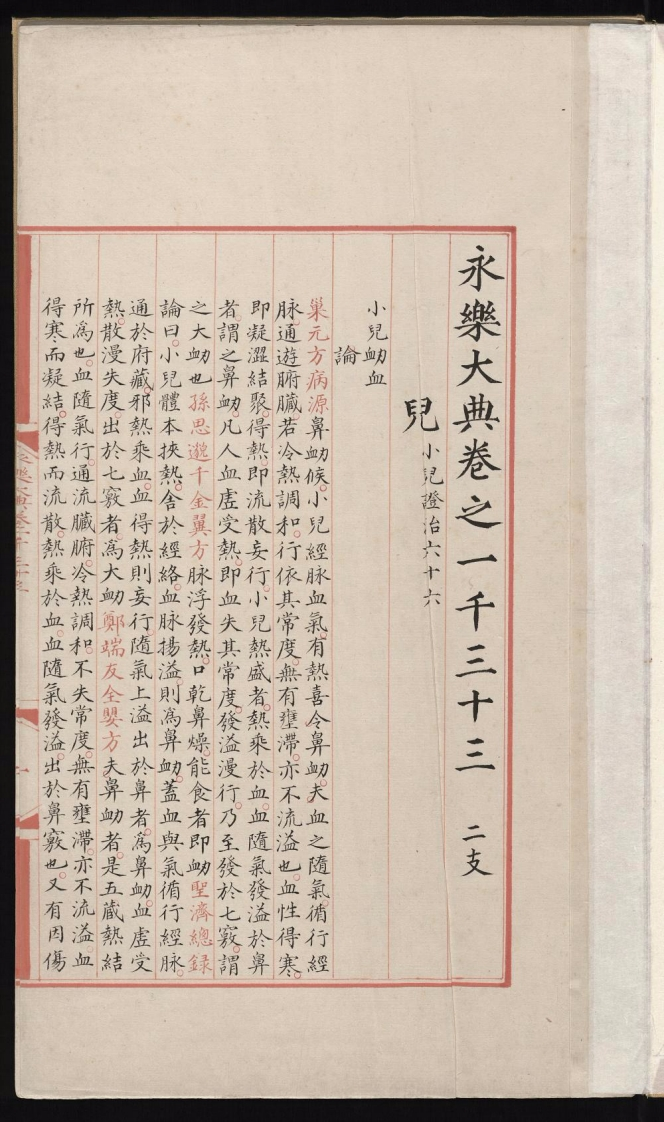 永樂大典卷之一千三十三 二支
兒 小兒證治六十六
小兒衄血
論
巢元方病源鼻衄候。小兒經脉血氣。有熱喜令鼻衄。夫血之隨氣。循行經
脉。通遊腑臟。若冷熱調和。行依其常度。無有壅滯。亦不流溢也。血性得寒。
即凝澀結聚。得熱即流散妄行。小兒熱盛者。熱乘於血。血隨氣發溢於鼻
者。謂之鼻衄。凡人血虛受熱。即血失其常度。發溢漫行。乃至發於七竅。謂
之大衄也 孫思邈千金翼方 脉浮發熱。口乾鼻燥。能食者即衄 聖濟總錄
論曰。小兒體本挾熱。舍於經絡。血脉揚溢則為鼻衄。蓋血與氣循行經脉。
通於府藏。邪熱乘血。血得熱則妄行。隨氣上溢出於鼻者。為鼻衄。血虛受
熱。散漫失度。出於七竅者。為大衄 鄭端友全嬰方 夫鼻衄者。是五藏熱結
所為也。血隨氣行。通流臟腑。冷熱調和。不失常度。無有壅滯。亦不流溢。血
得寒而凝結。得熱而流散。熱乘於血。血隨氣發溢。出於鼻竅也。又有因傷